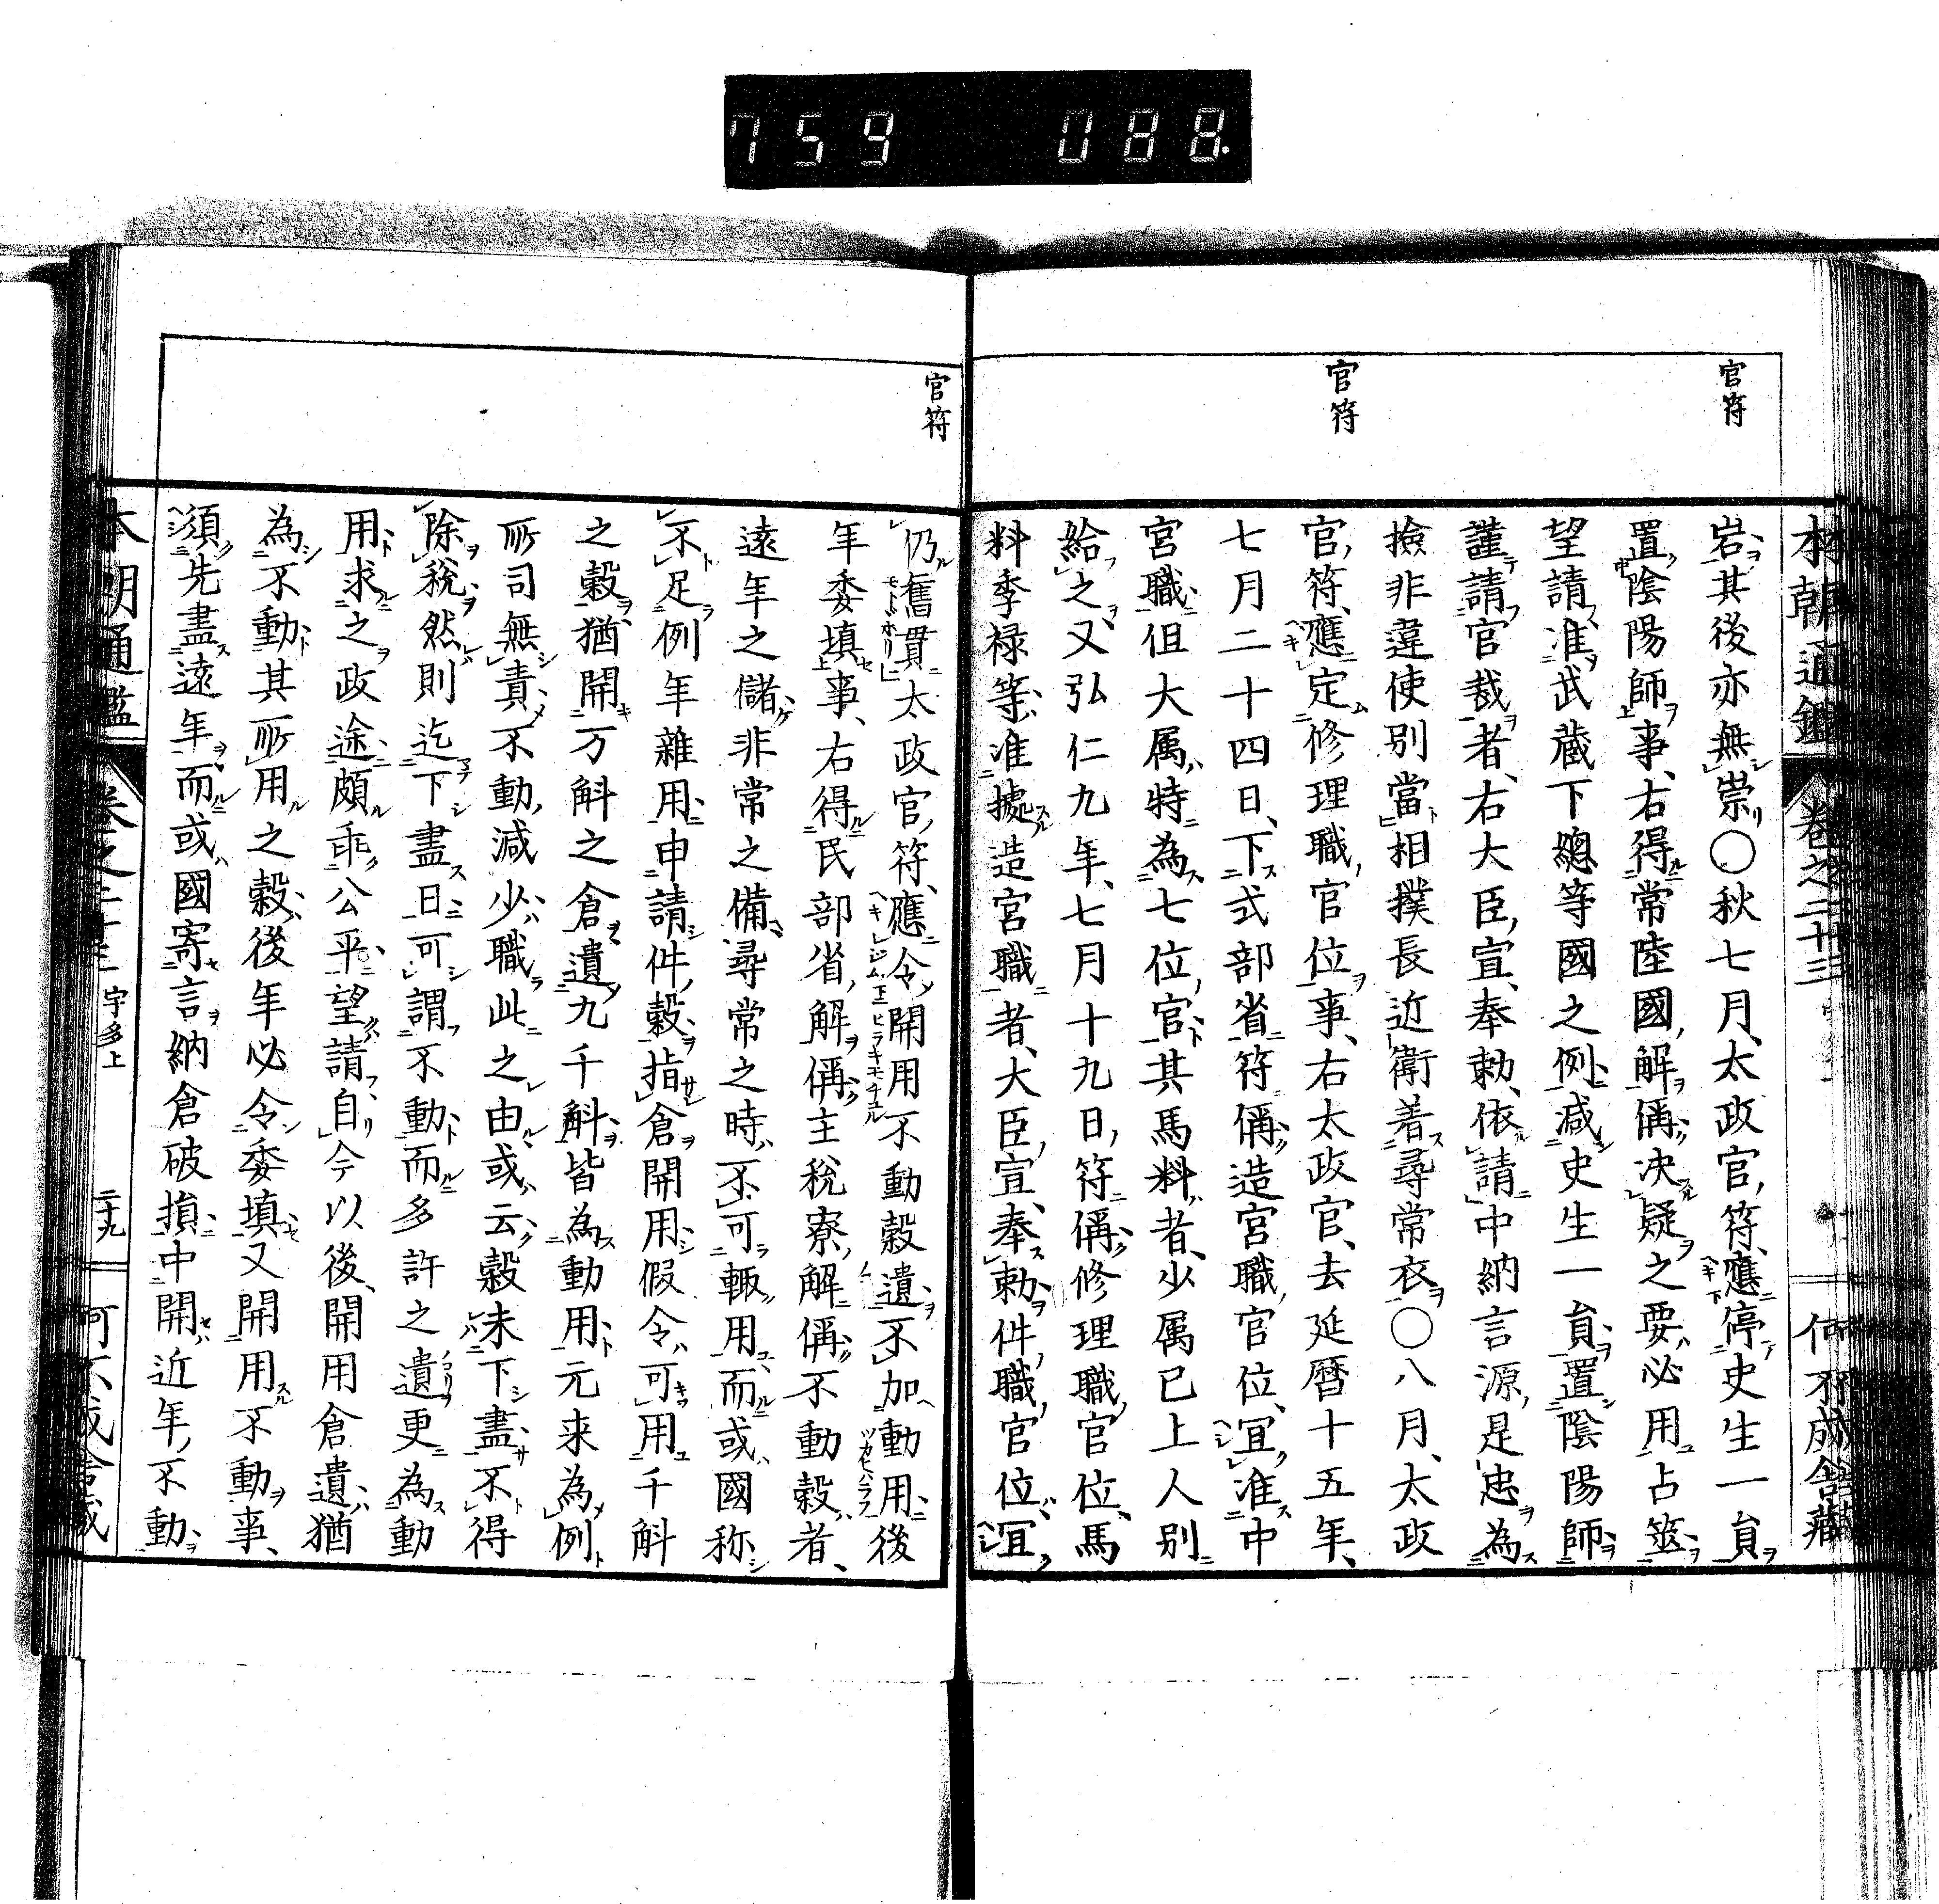 759 088.
本朝通鑑 卷之二十三
何不成舍藏
官符
官符
岩其後亦無崇〇秋七月、太政官符、應停史生一員
置陰陽師事、右得常陸國解偁、决疑之要、必用占筮
望請准武藏下總等國之例、减史生一員置陰陽師
謹請官裁者、右大臣宣、奉勅、依請中納言源是忠為
撿非違使別當相撲長近衛着尋常衣〇八月、太政
官符、應定修理職官位事、右太政官去延曆十五年、
七月二十四日、下式部省符偁、造宮職官位、冝准中
宮職但大属特為七位官其馬料者、少属已上人別
給之又弘仁九年、七月十九日符偁修理職官位、馬
料季祿等准據造宮職者、大臣宣、奉勅件職官位冝
官符
仍舊貫太政官符、應令開用不動穀遺不加動用後
年委填事、右得民部省解偁主稅寮解偁不動穀者、
遠年之儲非常之備尋常之時不可輙用而或國称
不足例年雜用申請件穀指倉開用假令可用千斛
之穀猶開万斛之倉遺九千斛皆為動用元来為例
所司無責不動減少職此之由或云穀未下盡不得
除稅然則迄下盡日可謂不動而多許之遺更為動
用求之政途頗乖公平望請自今以後、開用倉遺猶
為不動其所用之穀後年必令委填又開用不動事、
須先盡遠年而或國寄言納倉破損中開近年不動
本朝通鑑 卷之二十三 宇多上 二十九